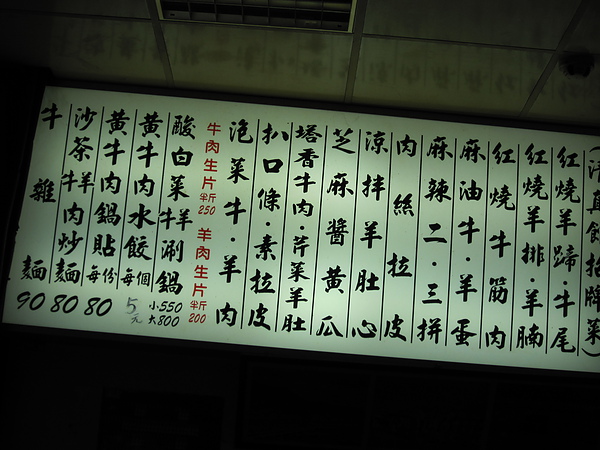 (清真館招牌菜)
紅燒羊蹄·牛尾
紅燒羊排·羊腩
紅燒牛筋肉
麻油牛·羊蛋
麻辣二·三拼
肉絲拉皮
涼拌羊肚心
芝麻醬黃瓜
塔香牛肉·芹菜羊肚
扒口條·素拉皮
泡菜牛·羊肉
牛肉生片半斤250 羊肉生片半斤200
酸白菜牛羊涮鍋 小550 大800
黃牛肉水餃每個 5元
黃牛肉鍋貼每份 80
沙茶牛羊肉炒麵 80
牛雜麵 90